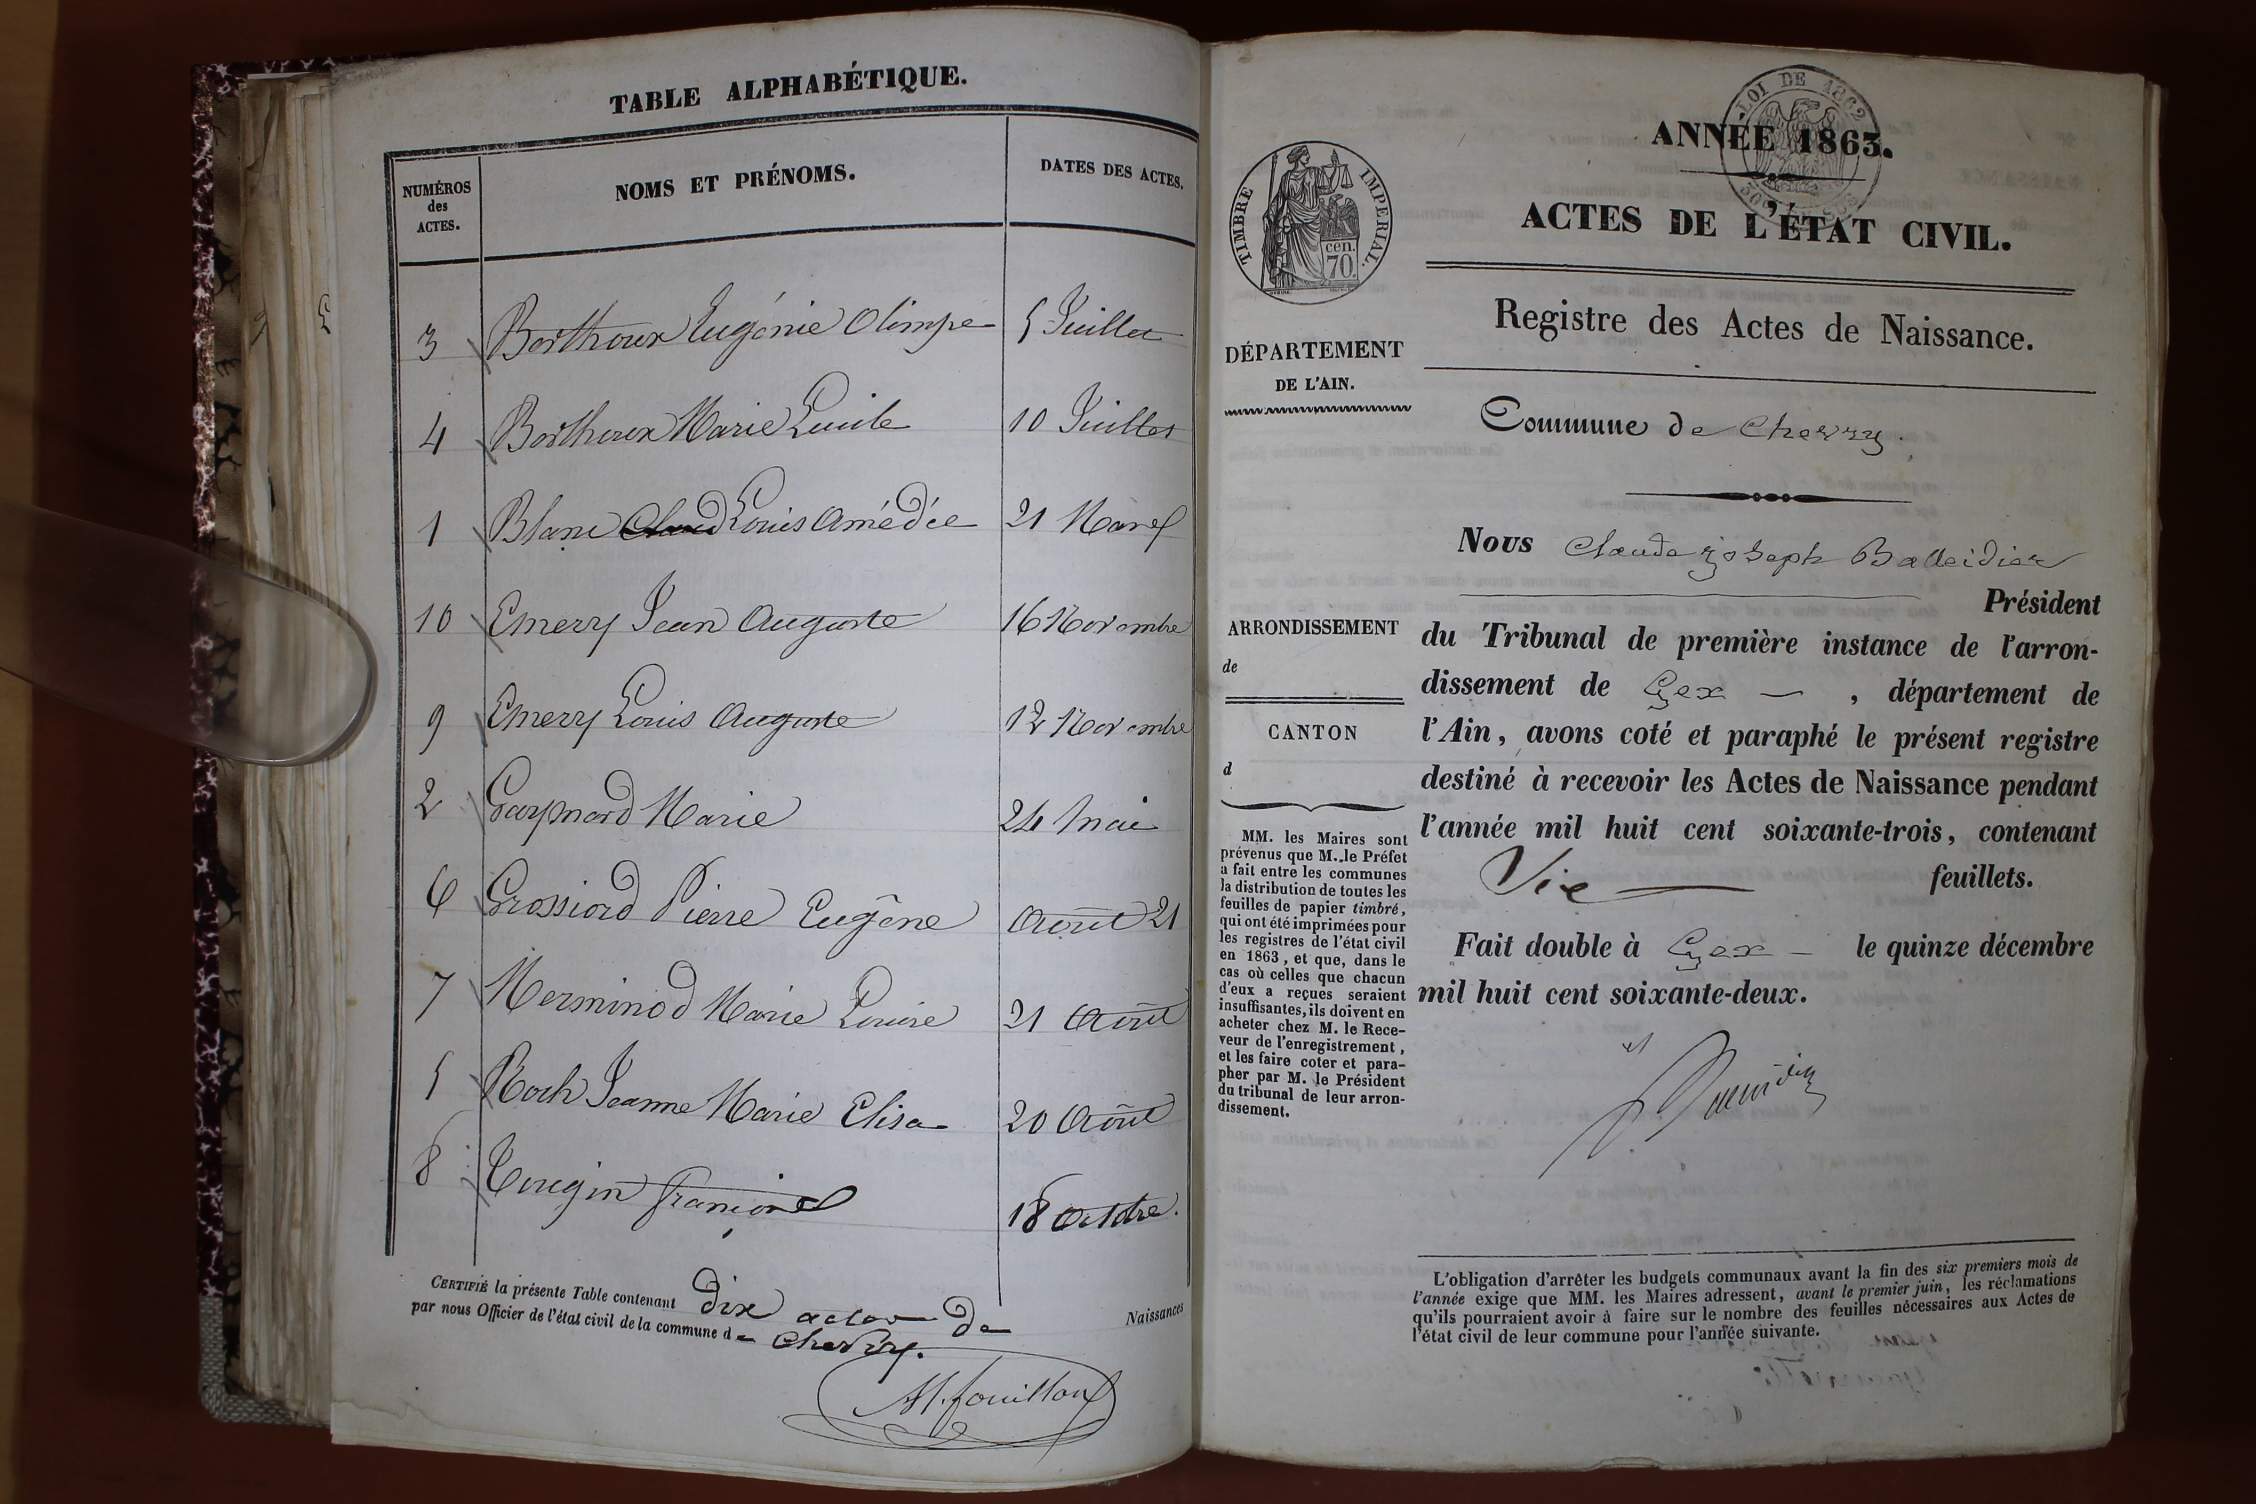 TABLE ALPHABÉTIQUE.
NUMÉROS
des
ACTES.
NOMS ET PRÉNOMS.
DATES DES ACTES.
3 Berthoux Eugénie Olimpe 5 Juillet
4 Berthoux Marie Lucile 10 Juillet
1 Blanc Claud Louis Amédée 21 Mars
10 Emery Jean Auguste 16 Novembre
9 Emery Louis Auguste 12 Novembre
2 Gaymard Marie 24 Mai
6 Grossiord Pierre Eugène Août 21
7 Merminod Marie Louise 21 Août
5 Roch Jeanne Marie Elisa 20 Août
8 Tougin François 18 Octobre.
CERTIFIÉ la présente Table contenant dix actes de Naissances
par nous Officier de l'état civil de la commune de Chevry.
LOI DE 1862
ANNÉE 1863.
ACTES DE L'ÉTAT CIVIL.
TIMBRE IMPÉRIAL.
70 cen.
Registre des Actes de Naissance.
DÉPARTEMENT
DE L'AIN.
Commune de Chevry.
Nous Claude joseph Balleidier
Président
ARRONDISSEMENT
de
CANTON
d
du Tribunal de première instance de l'arron-
dissement de Gex , département de
l'Ain, avons coté et paraphé le présent registre
destiné à recevoir les Actes de Naissance pendant
l'année mil huit cent soixante-trois, contenant
Six feuillets.
Fait double à Gex le quinze décembre
mil huit cent soixante-deux.
MM. les Maires sont
prévenus que M. le Préfet
a fait entre les communes
la distribution de toutes les
feuilles de papier timbré,
qui ont été imprimées pour
les registres de l'état civil
en 1863, et que, dans le
cas où celles que chacun
d'eux a reçues seraient
insuffisantes, ils doivent en
acheter chez M. le Rece-
veur de l'enregistrement,
et les faire coter et para-
pher par M. le Président
du tribunal de leur arron-
dissement.
L'obligation d'arrêter les budgets communaux avant la fin des six premiers mois de
l'année exige que MM. les Maires adressent, avant le premier juin, les réclamations
qu'ils pourraient avoir à faire sur le nombre des feuilles nécessaires aux Actes de
l'état civil de leur commune pour l'année suivante.